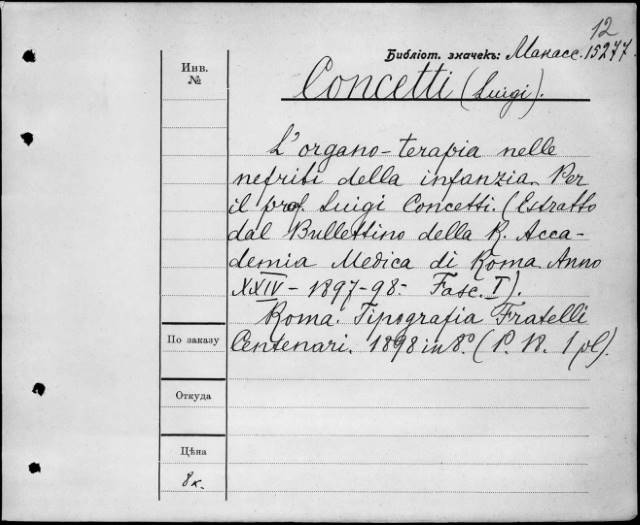 12
Библіот. значекъ: Манасс. 15277.
Инв.
№
Concetti (Luigi).
L'organo-terapia nelle
nefriti della infanzia. Per
il prof. Luigi Concetti. (Estratto
dal Bullettino della R. Acca-
demia Medica di Roma. Anno
XXIV - 1897-98 - Fasc. I).
Roma. Tipografia Fratelli
По заказу
Centenari. 1898 in 8º (P. 1 pl).
Откуда
Цѣна
8 к.